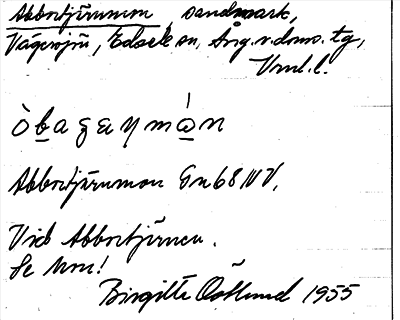 Abbortjärnmon, sandmark,
Vägersjön, Edsele sn, Ång. v. doms. tg,
Vnl. l.
òbagaηmòn
Abbortjärnmon Gn 68 NV,
Vid Abbortjärnen.
Se hm!
Birgitta Östlund 1955